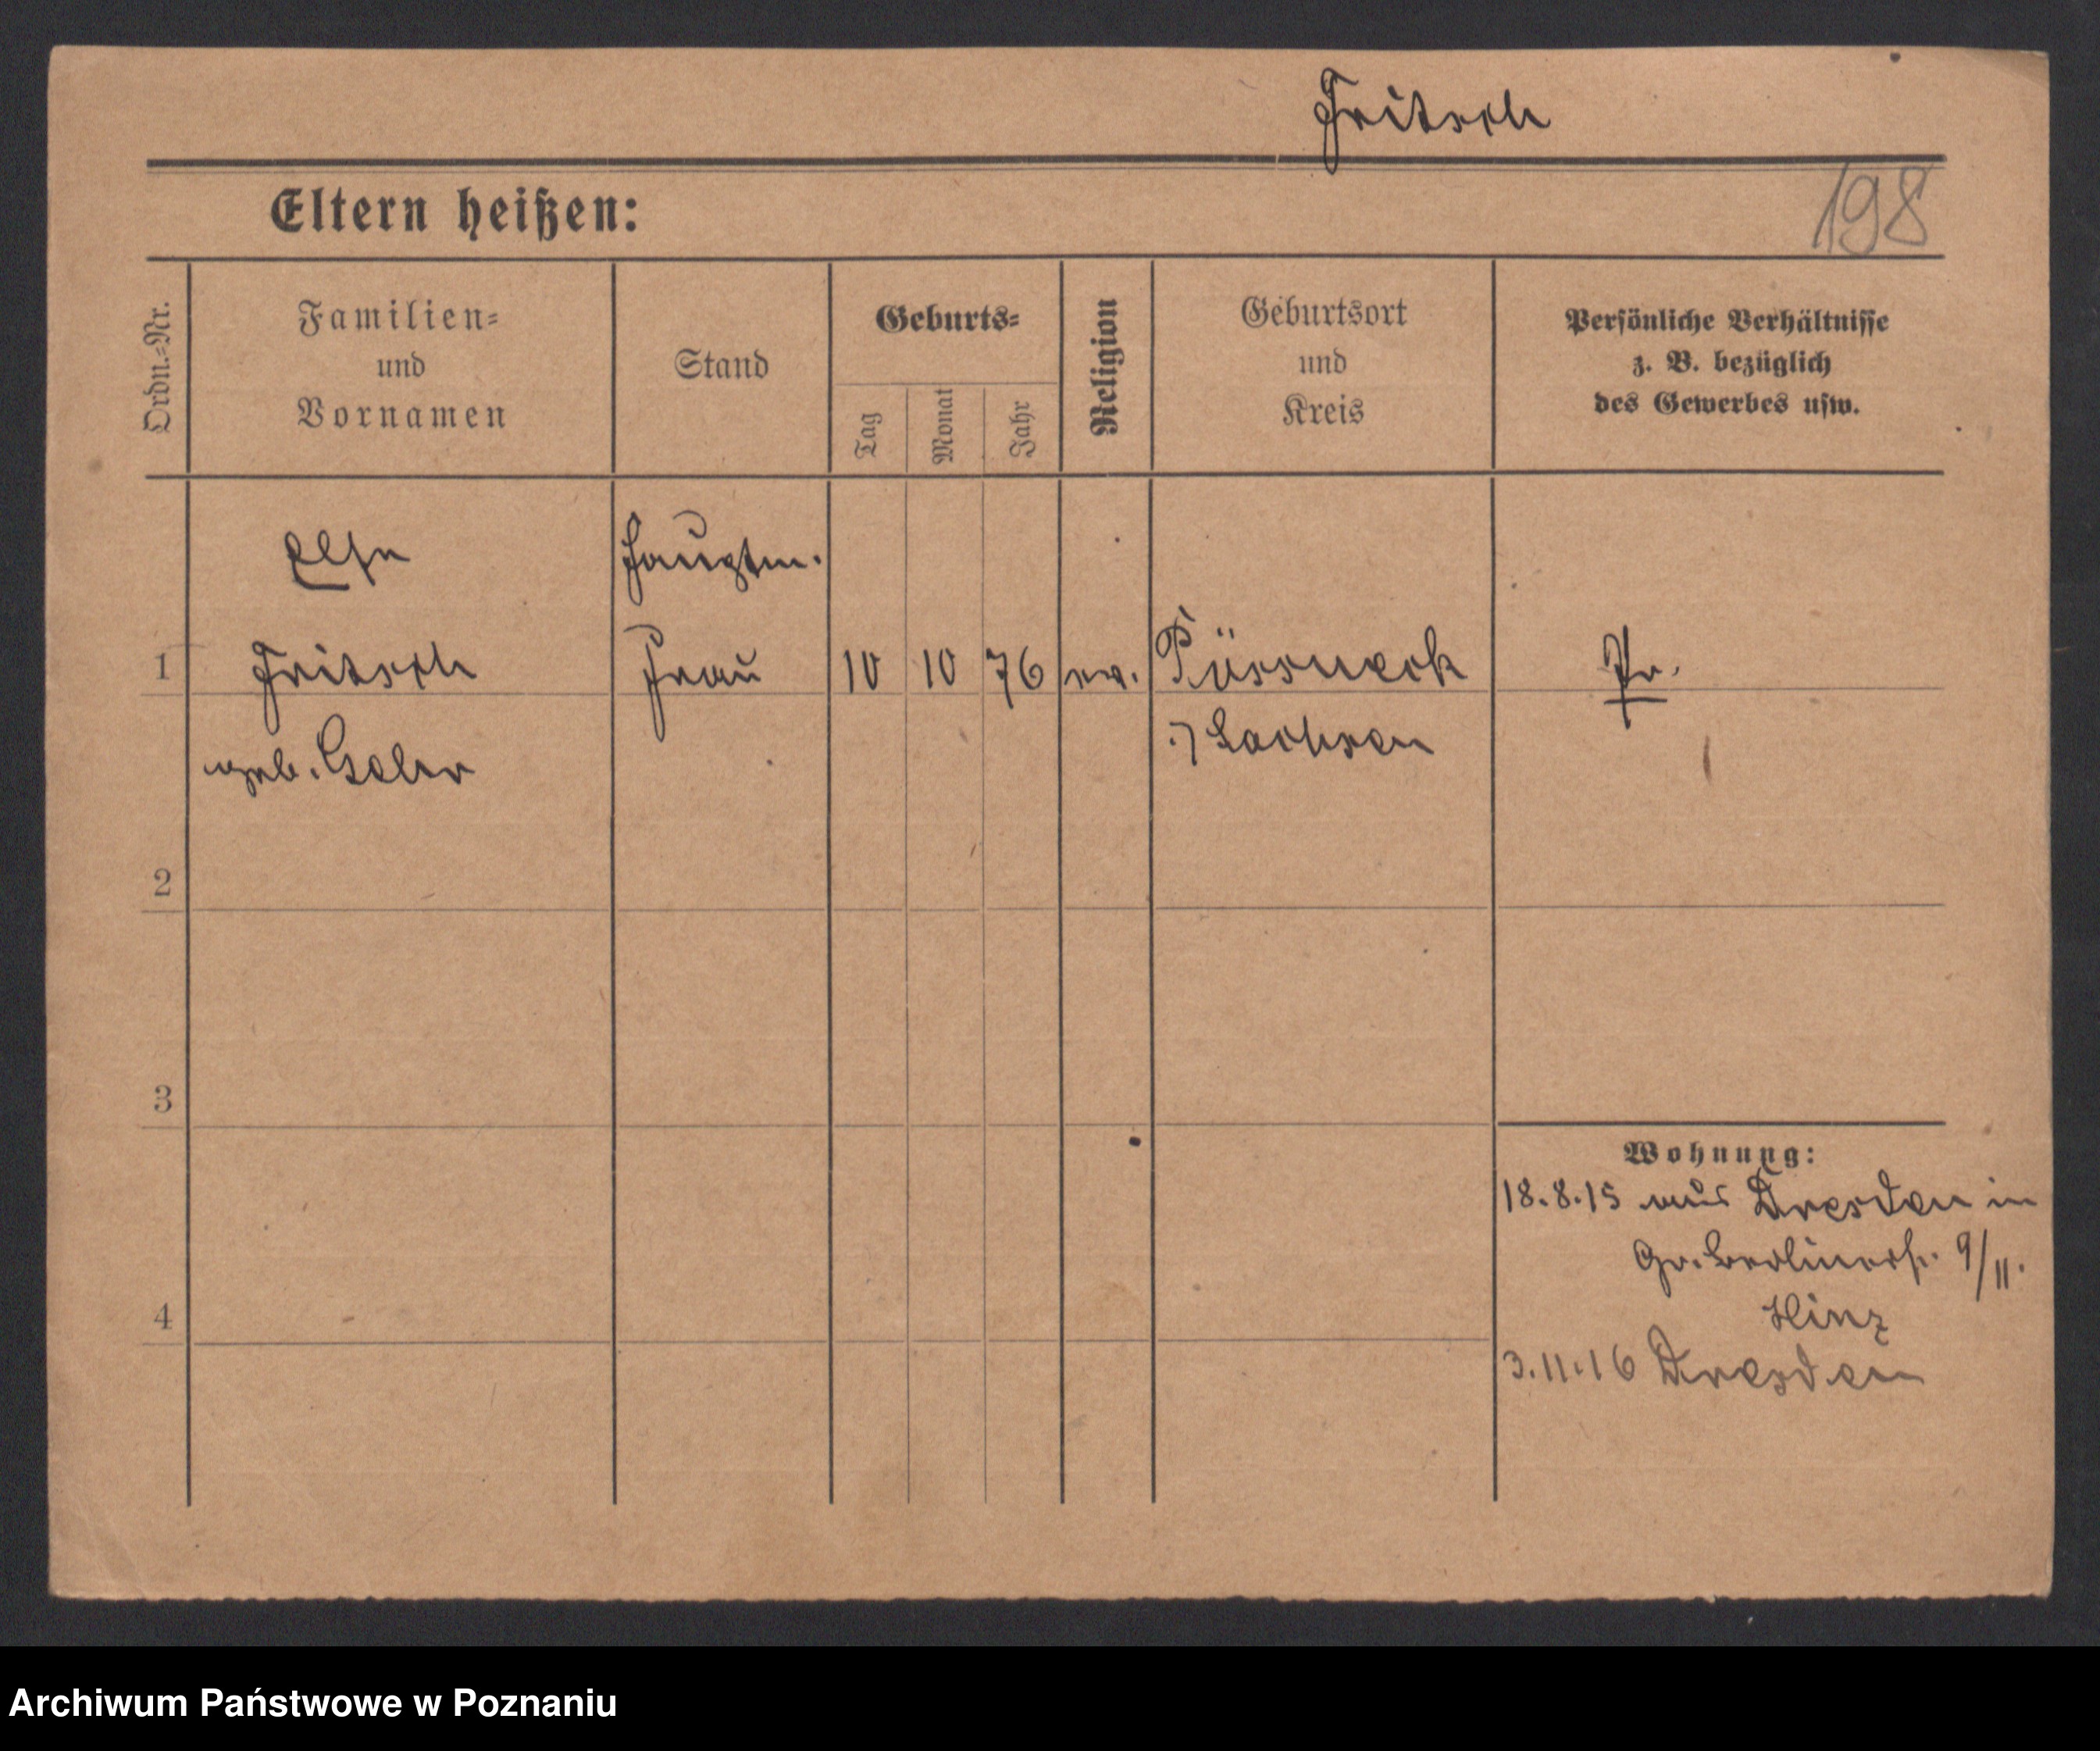 Fritsch
Eltern heißen:
198
Ordn.-Nr.
Familien-
und
Vornamen
Stand
Geburts-
Tag
Monat
Jahr
Religion
Geburtsort
und
Kreis
Persönliche Verhältnisse
z. B. bezüglich
des Gewerbes usw.
Else
Hauptm.
1 Fritsch Frau 10 10 76 ev. Pössneck Pr.
geb.
i/Sachsen
2
3
Wohnung:
18.8.15 aus Dresden in
Gr. Berlinerst. 9/II.
Hinz
4
3.11.16 Dresden
Archiwum Państwowe w Poznaniu